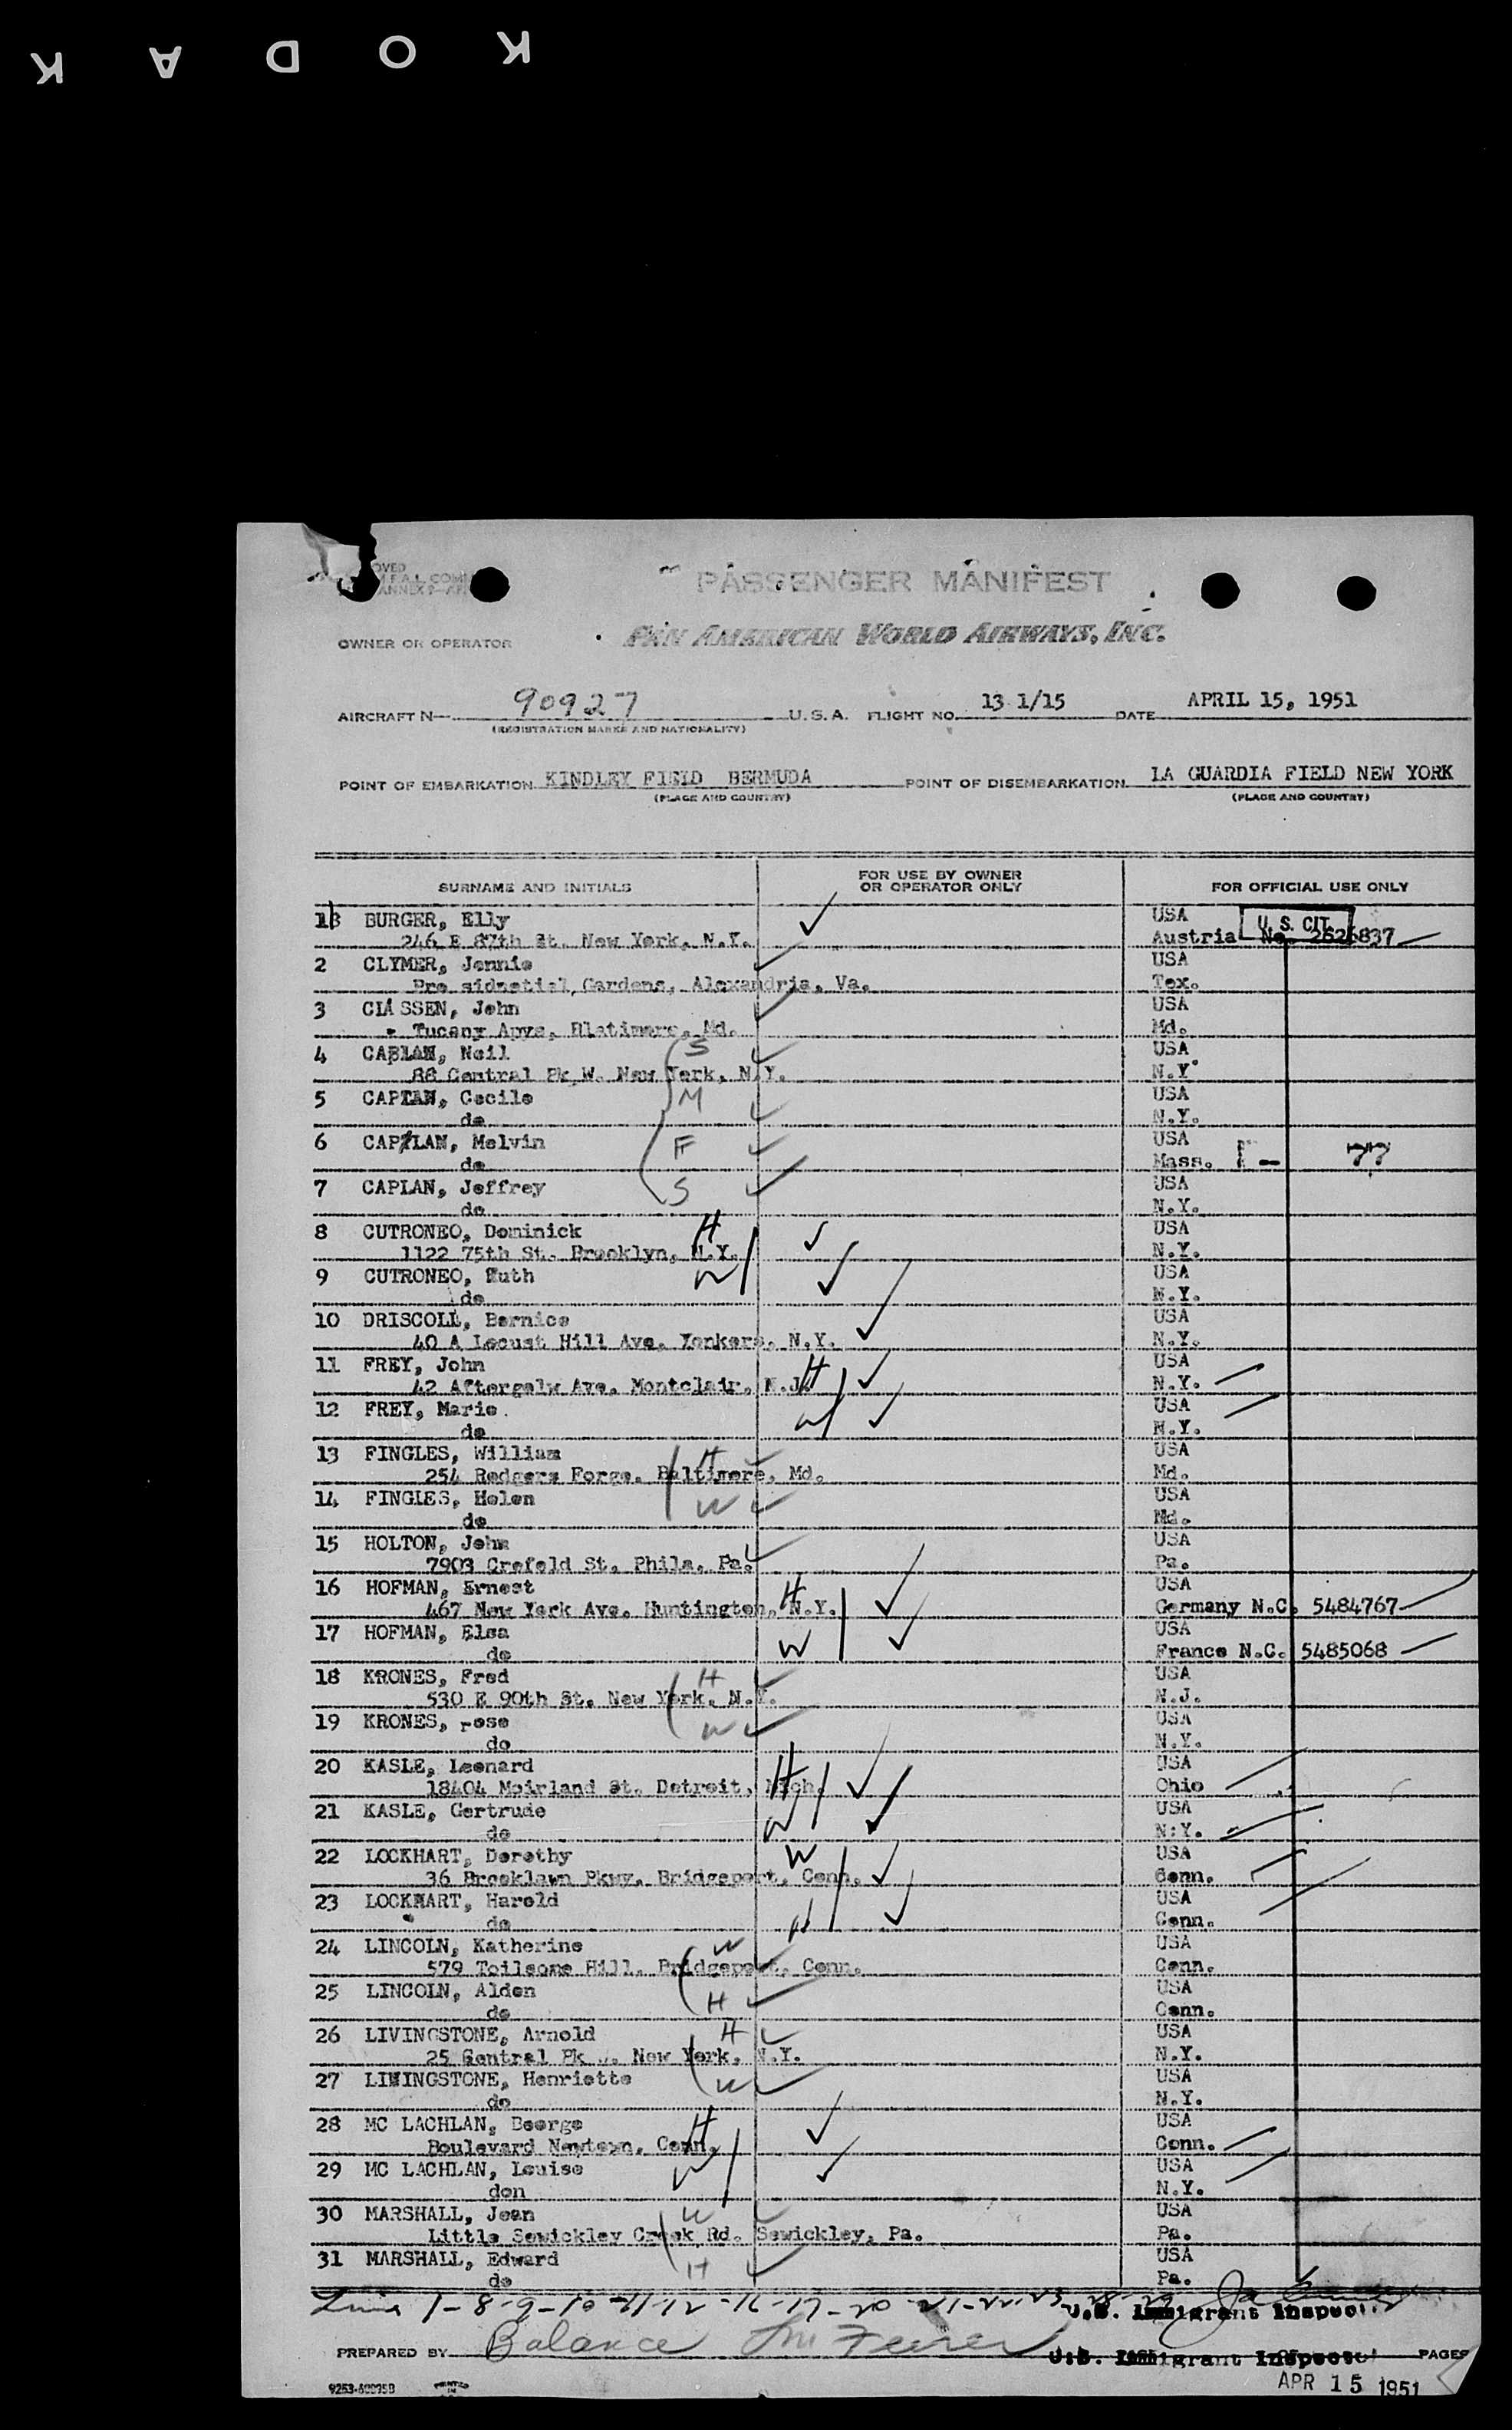 KODAK
OVED
PASSENGER MANIFEST
OWNER OR OPERATOR PAN AMERICAN WORLD AIRWAYS, INC.
AIRCRAFT N— 90927 U.S.A. FLIGHT NO. 13 1/15 DATE APRIL 15, 1951
(REGISTRATION MARKS AND NATIONALITY)
POINT OF EMBARKATION KINDLEY FIELD BERMUDA POINT OF DISEMBARKATION LA GUARDIA FIELD NEW YORK
(PLACE AND COUNTRY) (PLACE AND COUNTRY)
SURNAME AND INITIALS FOR USE BY OWNER OR OPERATOR ONLY FOR OFFICIAL USE ONLY
BURGER, Elly USA U. S. CIT.
246 E 87th St. New York, N.Y. Austria No.
2 CLYMER, Jennie USA
Gardens, Alexandria, Va. Tex.
3 CLASSEN, John USA
Tucany Apys, Blatimore, Md. Md.
4 CAPLAN, Neil S USA
88 Central Pk W. New York, N.Y. N.Y.
5 CAPLAN, Cecile M USA
do N.Y.
6 CAPLAN, Melvin F USA
do Mass. 77
7 CAPLAN, Jeffrey S USA
do N.Y.
8 CUTRONEO, Dominick H USA
1122 75th St. Brooklyn, N.Y. N.Y.
9 CUTRONEO, Ruth W USA
do N.Y.
10 DRISCOLL, Bernice USA
40 A Locust Hill Ave. Yonkers, N.Y. N.Y.
11 FREY, John H USA
42 Aftergelw Ave. Montclair, N.J. N.Y.
12 FREY, Marie W USA
do N.Y.
13 FINGLES, William H USA
254 Redgers Forge. Baltimore, Md. Md.
14 FINGLES, Helen W USA
do Md.
15 HOLTON, John USA
7903 Crefeld St. Phila. Pa. Pa.
16 HOFMAN, Ernest H USA
467 New York Ave. Huntington, N.Y. Germany N.C. 5484767
17 HOFMAN, Elsa W USA
do France N.C. 5485068
18 KRONES, Fred H USA
530 E 90th St. New York, N.Y. N.J.
19 KRONES, rose W USA
do N.Y.
20 KASLE, Leonard H USA
18404 Moirland St. Detroit, Mich. Ohio
21 KASLE, Gertrude W USA
do N.Y.
22 LOCKHART, Dorothy W USA
36 Brooklawn Pkwy. Bridgeport, Conn. Conn.
23 LOCKHART, Harold H USA
do Conn.
24 LINCOLN, Katherine W USA
579 Toilsome Hill. Bridgeport, Conn. Conn.
25 LINCOLN, Alden H USA
do Conn.
26 LIVINGSTONE, Arnold H USA
25 Central Pk W. New York, N.Y. N.Y.
27 LIVINGSTONE, Henriette W USA
do N.Y.
28 MC LACHLAN, Beorge H USA
Boulevard Newtown, Conn. Conn.
29 MC LACHLAN, Louise W USA
don N.Y.
30 MARSHALL, Jean W USA
Little Sewickley Creek Rd. Sewickley, Pa. Pa.
31 MARSHALL, Edward H USA
do Pa.
U.S. Immigrant Inspector
PREPARED BY Balance U.S. Immigrant Inspector PAGES
APR 15 1951